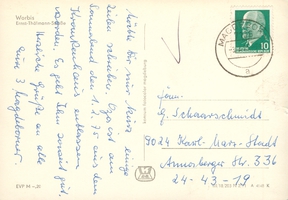 Worbis
Ernst-Thälmann-Straße
Möchte Dir nur kurz einige
Zeilen schreiben. Opa ist am
Sonnabend den 1.8. aus dem
Krankenhaus entlassen
worden. Es geht ihm soweit gut.
Herzliche Grüße an alle
Eure 3 Magdeborner
MAGDE
10
Fam.
G. Schaarschmidt
9024 Karl-Marx-Stadt
Annaberger Str. 336
24-43-19